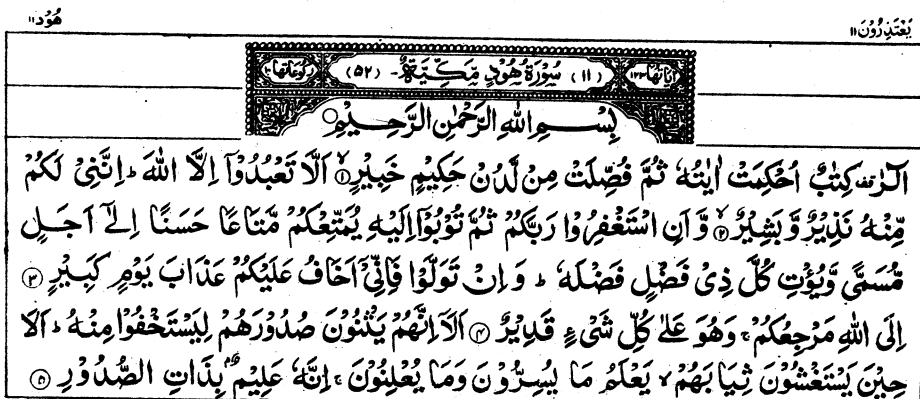 یَعْتَذِرُوْنَ ۱۱
هُوْد ۱۱
اٰیَاتُهَا ۱۲۳ (۱۱) سُوْرَةُ هُوْدٍ مَّكِّیَّةٌ (۵۲) رُكُوْعَاتُهَا ۱۰
بِسْمِ اللّٰهِ الرَّحْمٰنِ الرَّحِیْمِ
الٓرٰ كِتٰبٌ اُحْكِمَتْ اٰیٰتُهٗ ثُمَّ فُصِّلَتْ مِنْ لَّدُنْ حَكِیْمٍ خَبِیْرٍ ۱ اَلَّا تَعْبُدُوْۤا اِلَّا اللّٰهَ ؕ اِنَّنِیْ لَكُمْ
مِّنْهُ نَذِیْرٌ وَّ بَشِیْرٌ ۲ وَّ اَنِ اسْتَغْفِرُوْا رَبَّكُمْ ثُمَّ تُوْبُوْۤا اِلَیْهِ یُمَتِّعْكُمْ مَّتَاعًا حَسَنًا اِلٰۤی اَجَلٍ
مُّسَمًّی وَّ یُؤْتِ كُلَّ ذِیْ فَضْلٍ فَضْلَهٗ ؕ وَ اِنْ تَوَلَّوْا فَاِنِّیْۤ اَخَافُ عَلَیْكُمْ عَذَابَ یَوْمٍ كَبِیْرٍ ۳
اِلَی اللّٰهِ مَرْجِعُكُمْ ۚ وَ هُوَ عَلٰی كُلِّ شَیْءٍ قَدِیْرٌ ۴ اَلَاۤ اِنَّهُمْ یَثْنُوْنَ صُدُوْرَهُمْ لِیَسْتَخْفُوْا مِنْهُ ؕ اَلَا
حِیْنَ یَسْتَغْشُوْنَ ثِیَابَهُمْ ۙ یَعْلَمُ مَا یُسِرُّوْنَ وَ مَا یُعْلِنُوْنَ ۚ اِنَّهٗ عَلِیْمٌۢ بِذَاتِ الصُّدُوْرِ ۵